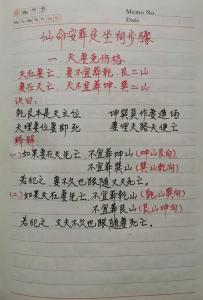 Memo No.
Date
仙命安葬是坐向步骤
一 夫妻克伤格
夫在妻亡 妻不宜葬乾、艮二山
妻在夫亡 夫不宜葬坤、巽二山
诀曰:
乾艮本是夫主位 坤巽莫作妻道场
夫埋妻位妻即死 妻埋夫路夫便亡
略解:
(一)如果妻在夫先亡,不宜葬坤山(坤山艮向)
不宜葬巽山(巽山乾向)
若犯之,妻不久也跟随丈夫死亡。
(二)如果夫在妻先亡,不宜葬乾山(乾山巽向)
不宜葬艮山(艮山坤向)
若犯之,丈夫不久也跟随妻死亡。